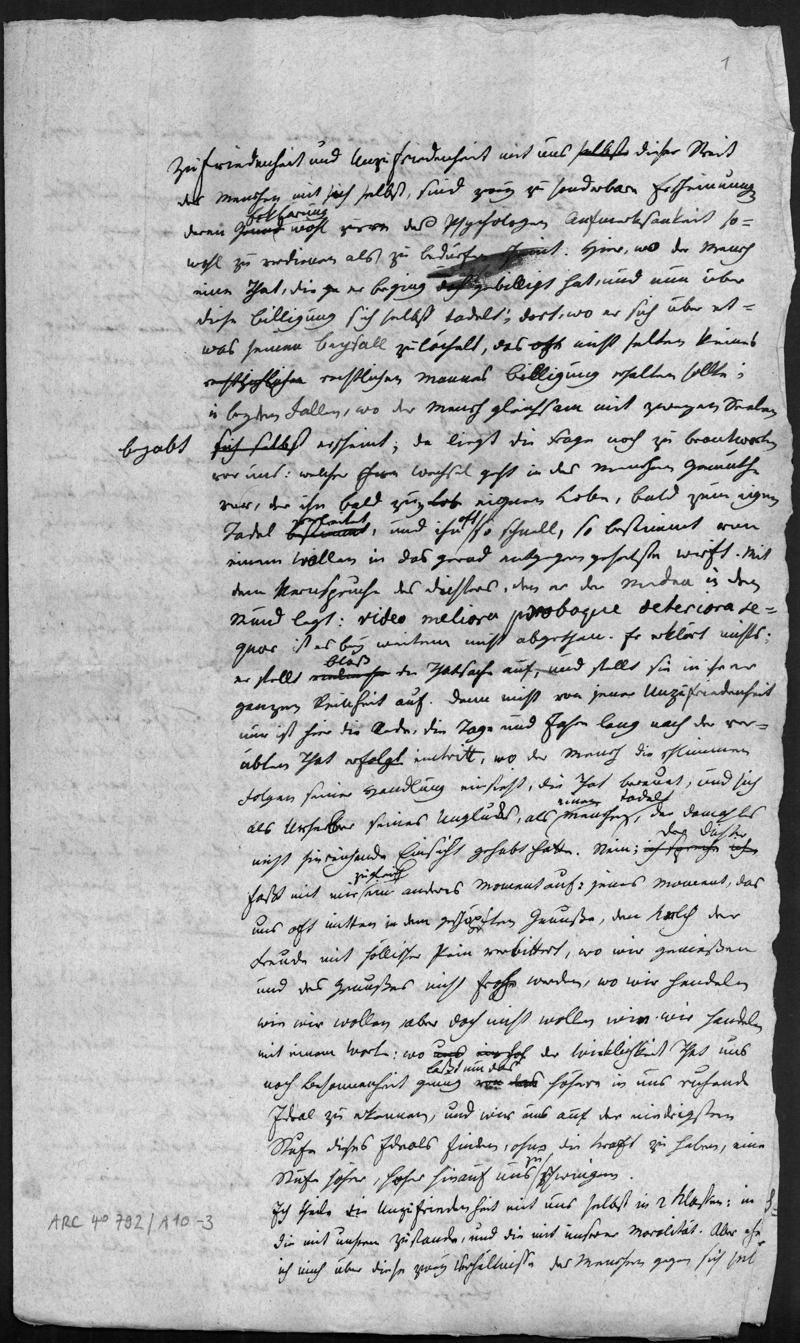 1
Zufriedenheit und Unzufriedenheit mit uns selbst dieser Streit
des Menschen mit sich selbst, sind zwey zu sonderbare Erscheinungen
Erklärung
deren Grund wohl zuvor des Psychologen Aufmerksamkeit so-
wohl zu verdienen als zu bedürfen scheint. Hier, wo der Mensch
eine That, die er beging gebilligt hat, und nun über
diese Billigung sich selbst tadelt; dort, wo er sich über et-
was seinen Beyfall zulächelt, das oft nicht selten keines
rechtlichen Mannes Billigung erhalten sollte;
in beyden Fällen, wo der Mensch gleichsam mit zweyen Seelen
begabt sich selbst erscheint; da liegt die Frage noch zu beantworten
vor uns: welcher Wechsel geht in des Menschen Gemüthe
vor, der ihn bald zum Lob eignen Lobe, bald zum eignen
Tadel bestimmt, und ihn oft so schnell, so bestimmt von
einem Wollen in das gerad entgegengesetzte wirft. Mit
dem Kernspruche des Dichters, den er der Medea in den
Mund legt: video meliora proboque deteriora se-
quor ist es bey weitem nicht abgethan. Er erklärt nichts;
bloß
er stellt die Thatsache auf, und stellt sie in ihrer
ganzen Reinheit auf. Denn nicht von jener Unzufriedenheit
nur ist hier die Rede, die Tage und Jahre lang nach der ver-
übten That erfolgt eintritt, wo der Mensch die schlimmen
Folgen seiner Handlung einsieht, die That bereuet, und sich
als Urheber seines Unglücks, als einen Menschen tadelt, der damals
nicht hinreichende Einsicht gehabt hatte. Nein; der Dichter
faßt mit mir zugleich ein anderes Moment auf: jenes Moment, das
uns oft mitten in dem Genuße, den Kelch der
Freude mit höllischer Pein verbittert, wo wir genießen
und des Genußes nicht froh werden, wo wir handeln
wie wir wollen aber doch nicht wollen wie wir handeln
mit einem Worte: wo uns der Wirklichkeit That uns
läßt um das
noch Besonnenheit genug von das höhere in uns ruhende
Ideal zu erkennen, und wir uns auf der niedrigsten
Stufe dieses Ideals finden, ohne die Kraft zu haben, eine
Stufe höher, höher hinauf uns zu schwingen.
Ich theile die Unzufriedenheit mit uns selbst in 2 Klassen: in
die mit unserm Zustande, und die mit unserer Moralität. Aber ehe
ich mich über diese zwey Verhältnisse des Menschen gegen sich sel
ARC 4° 792/A10-3